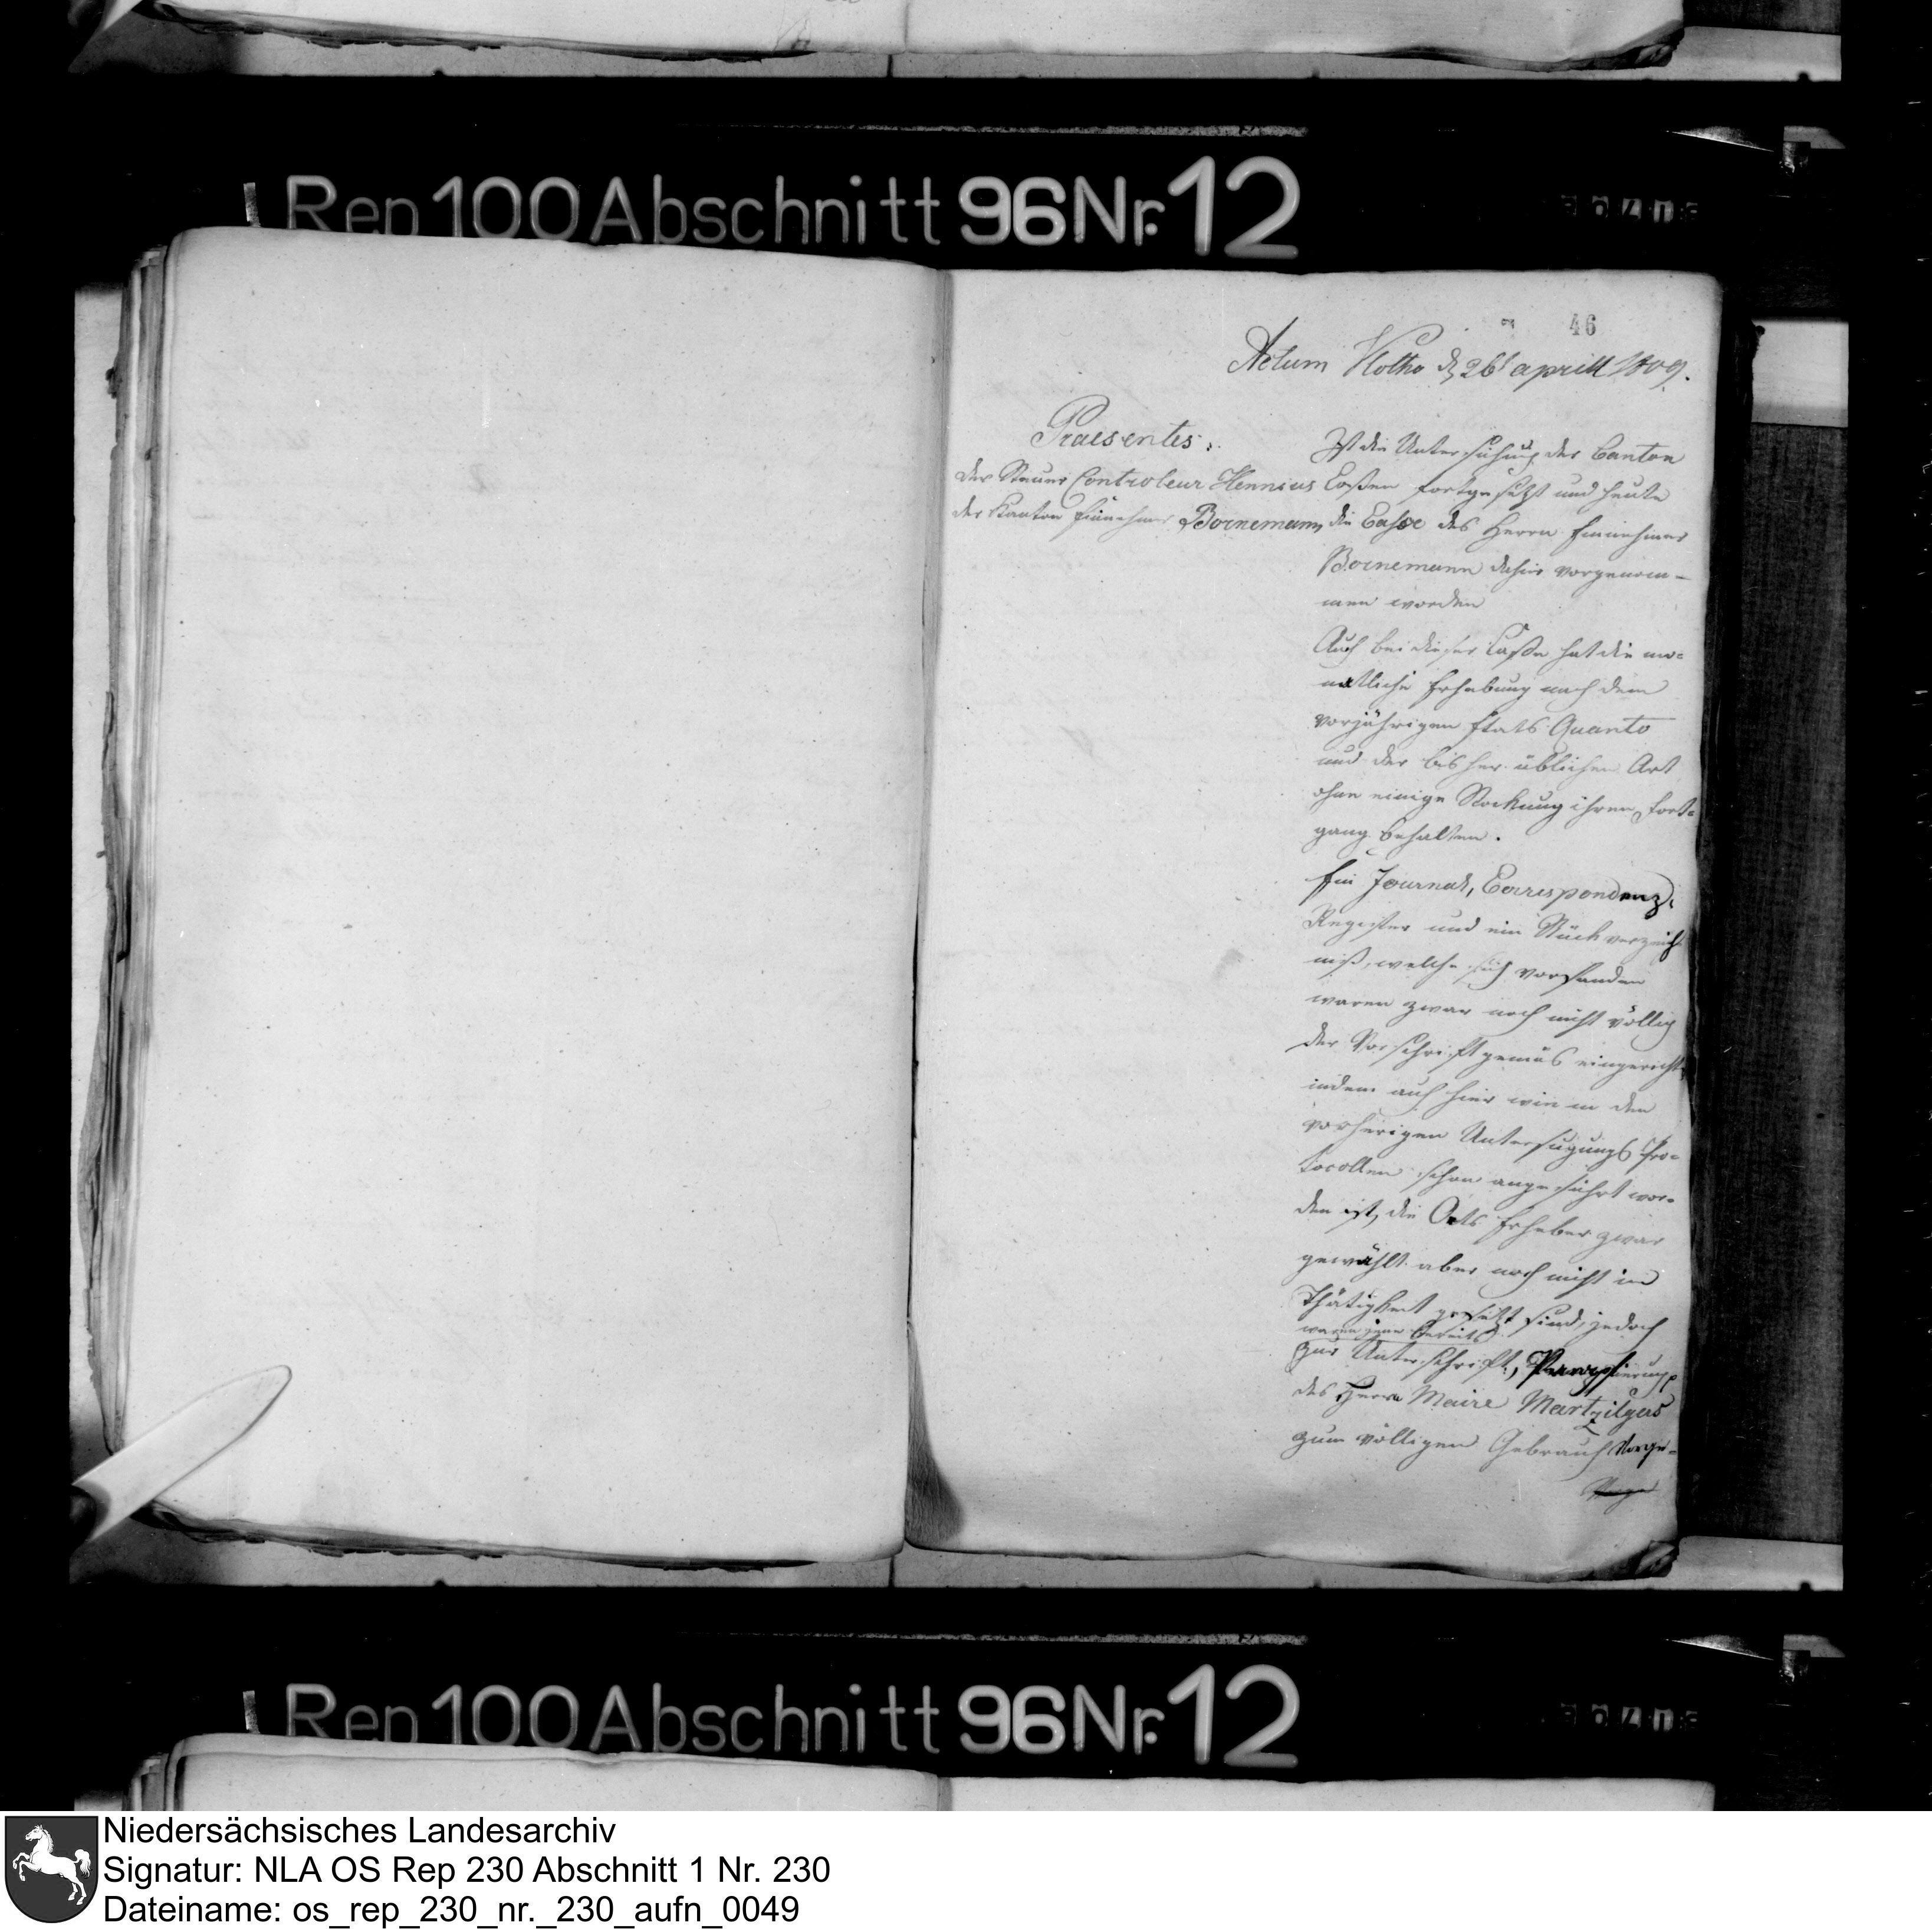 Rep 100 Abschnitt 96 Nr. 12
46
Actum Vlotho d 26t aprill 1809.
Praesentes:
der Steuer Controleur Hennius
der Kanton Einnehmer Bornemann
Ist die Untersuchung der Canton
Caßen fortgesetzt und heute
die Casse des Herrn Einnehmer
Bornemann dahier vorgenom-
men worden
Auch bei dieser Caße hat die mo-
natliche Erhebung nach dem
vorjährigen Etats Quanto
und der bisher üblichen Art
ohne einige Stockung ihren Fort-
gang behalten.
Ein Journal, Correspondenz,
Register und ein Stück verzeich
niß, welche sich vorfanden
waren zwar noch nicht völlig
der Vorschrift gemäs eingericht,
indem auch hier wie in den
vorherigen Untersugungs Pro-
tocollen schon angeführt wor-
den ist, die Orts Erheber zwar
gewählt aber noch nicht in
Thätigkeit gesetzt sind, jedoch
waren jene bereits
zur Unterschrift,
des Herrn Maire Martzilger
zum völligen Gebrauch vorge-
Rep 100 Abschnitt 96 Nr. 12
Niedersächsisches Landesarchiv
Signatur: NLA OS Rep 230 Abschnitt 1 Nr. 230
Dateiname: os_rep_230_nr._230_aufn_0049